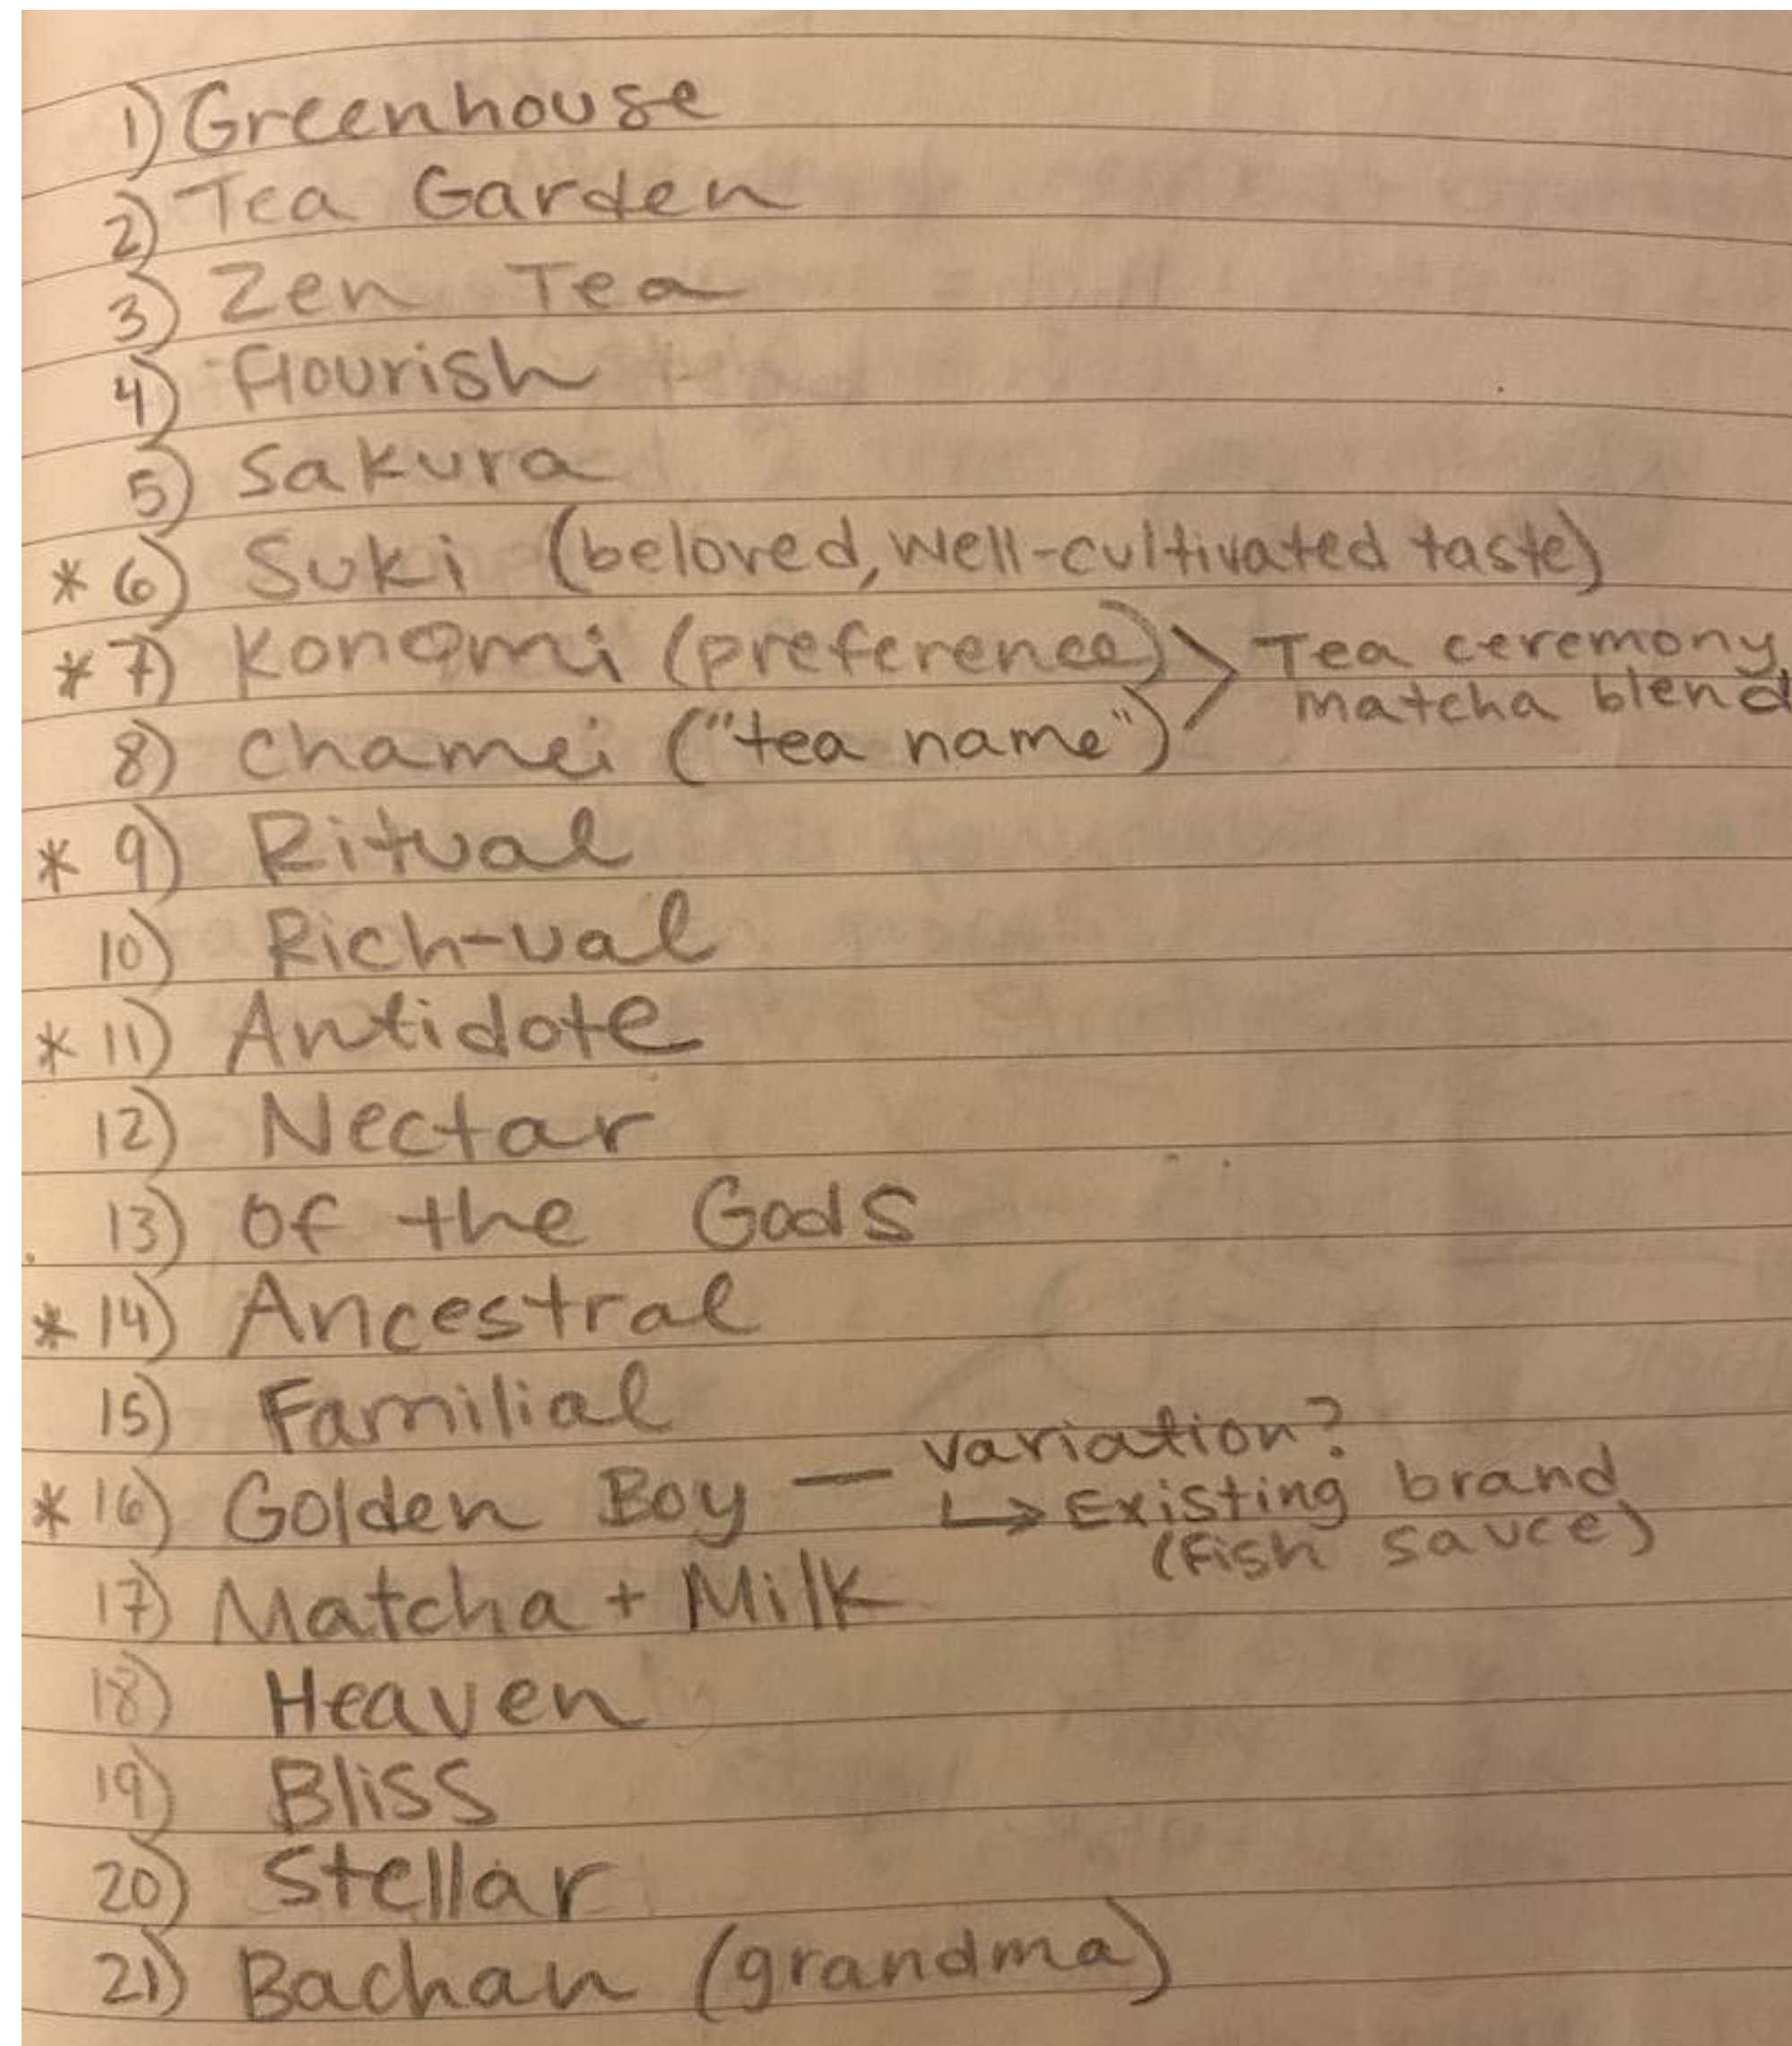 1) Greenhouse
2) Tea Garden
3) Zen Tea
4) Flourish
5) Sakura
* 6) Suki (beloved, well-cultivated taste)
* 7) Konomi (preference) > Tea ceremony,
matcha blend
8) Chamei ("tea name")
* 9) Ritual
10) Rich-ual
* 11) Antidote
12) Nectar
13) Of the Gods
* 14) Ancestral
15) Familial
* 16) Golden Boy — variation?
↳ Existing brand
(fish sauce)
17) Matcha + Milk
18) Heaven
19) Bliss
20) Stellar
21) Bachan (grandma)